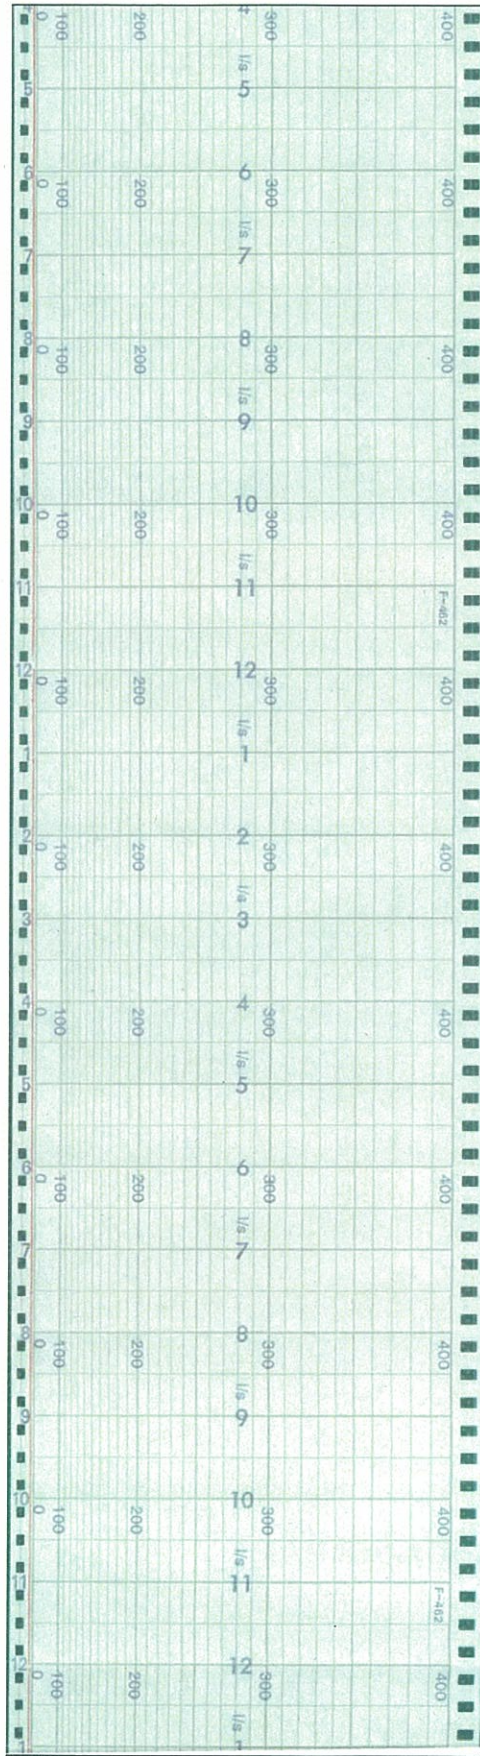 4 0 100 200 4 300 400
5 l/s 5
6 0 100 200 6 300 400
7 l/s 7
8 0 100 200 8 300 400
9 l/s 9
10 0 100 200 10 300 400
11 l/s 11 F-462
12 0 100 200 12 300 400
1 l/s 1
2 0 100 200 2 300 400
3 l/s 3
4 0 100 200 4 300 400
5 l/s 5
6 0 100 200 6 300 400
7 l/s 7
8 0 100 200 8 300 400
9 l/s 9
10 0 100 200 10 300 400
11 l/s 11 F-462
12 0 100 200 12 300 400
l/s